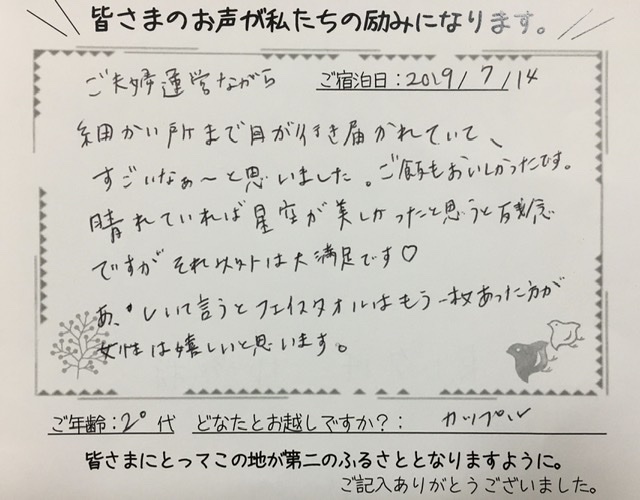 皆さまのお声が私たちの励みになります。
ご夫婦運営ながら ご宿泊日：2019/7/14
細かい所まで目が行き届かれていて、
すごいなぁ～と思いました。ご飯もおいしかったです。
晴れていれば星空が美しかったと思うと残念
ですが それ以外は大満足です♡
あ、しいて言うとフェイスタオルはもう一枚あった方が
女性は嬉しいと思います。
ご年齢：20代 どなたとお越しですか？： カップル
皆さまにとってこの地が第二のふるさととなりますように。
ご記入ありがとうございました。